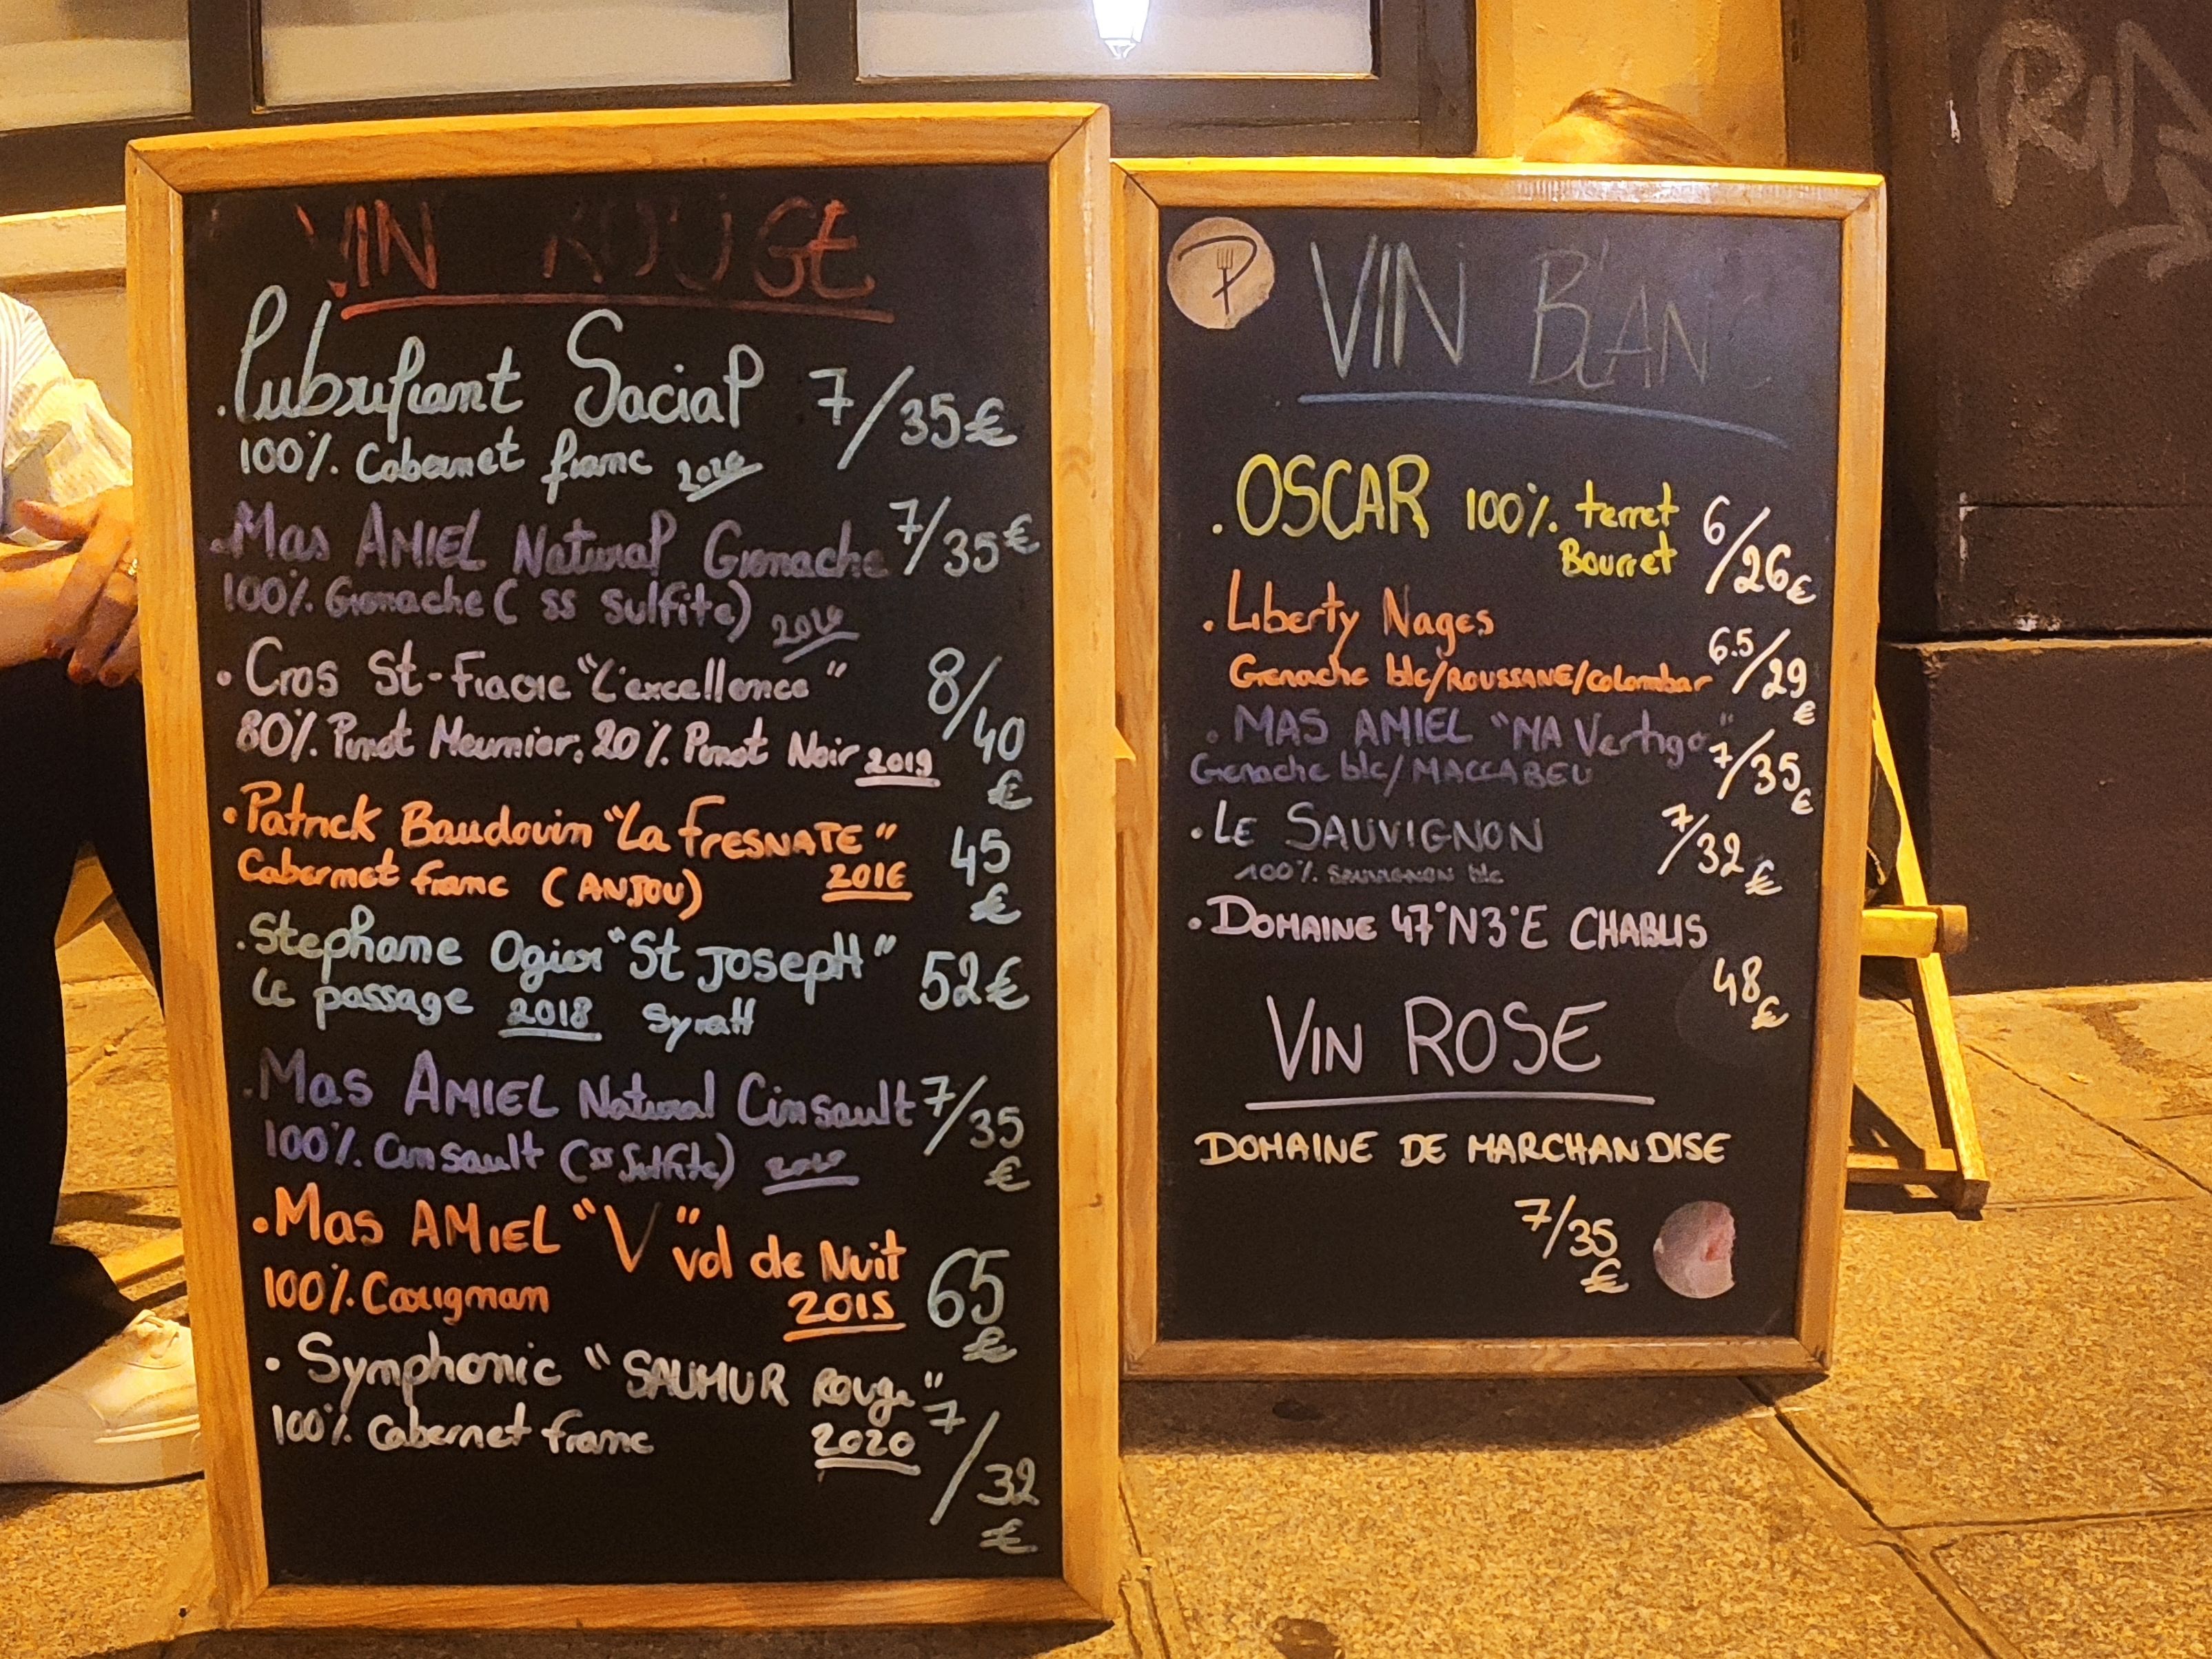 VIN ROUGE
. Lubrifiant Social 7/35€
100% Cabernet franc 2020
. Mas AMIEL Natural Grenache 7/35€
100% Grenache (ss sulfite) 2020
. Cros St-Fiacre "L'excellence" 8/40€
80% Pinot Meunier, 20% Pinot Noir 2019
. Patrick Baudouin "La FRESNATE" 45€
Cabernet franc (ANJOU) 2016
. Stephane Ogier "St JOSEPH" 52€
Le passage 2018 SyraH
. Mas AMIEL Natural Cinsault 7/35€
100% Cinsault (ss Sulfite) 2020
. Mas AMIEL "V" vol de Nuit 65€
100% Carignan 2015
. Symphonic "SAUMUR Rouge" 7/32€
100% Cabernet franc 2020
VIN BLANC
. OSCAR 100% terret 6/26€
Bourret
. Liberty Nages
Grenache blc/ROUSSANE/colombar 6.5/29€
. MAS AMIEL "MA Vertigo" 7/35€
Grenache blc/MACCABEU
. LE SAUVIGNON 7/32€
100% SAUVIGNON blc
. DOMAINE 47°N3°E CHABLIS
48€
VIN ROSE
DOMAINE DE MARCHANDISE
7/35€